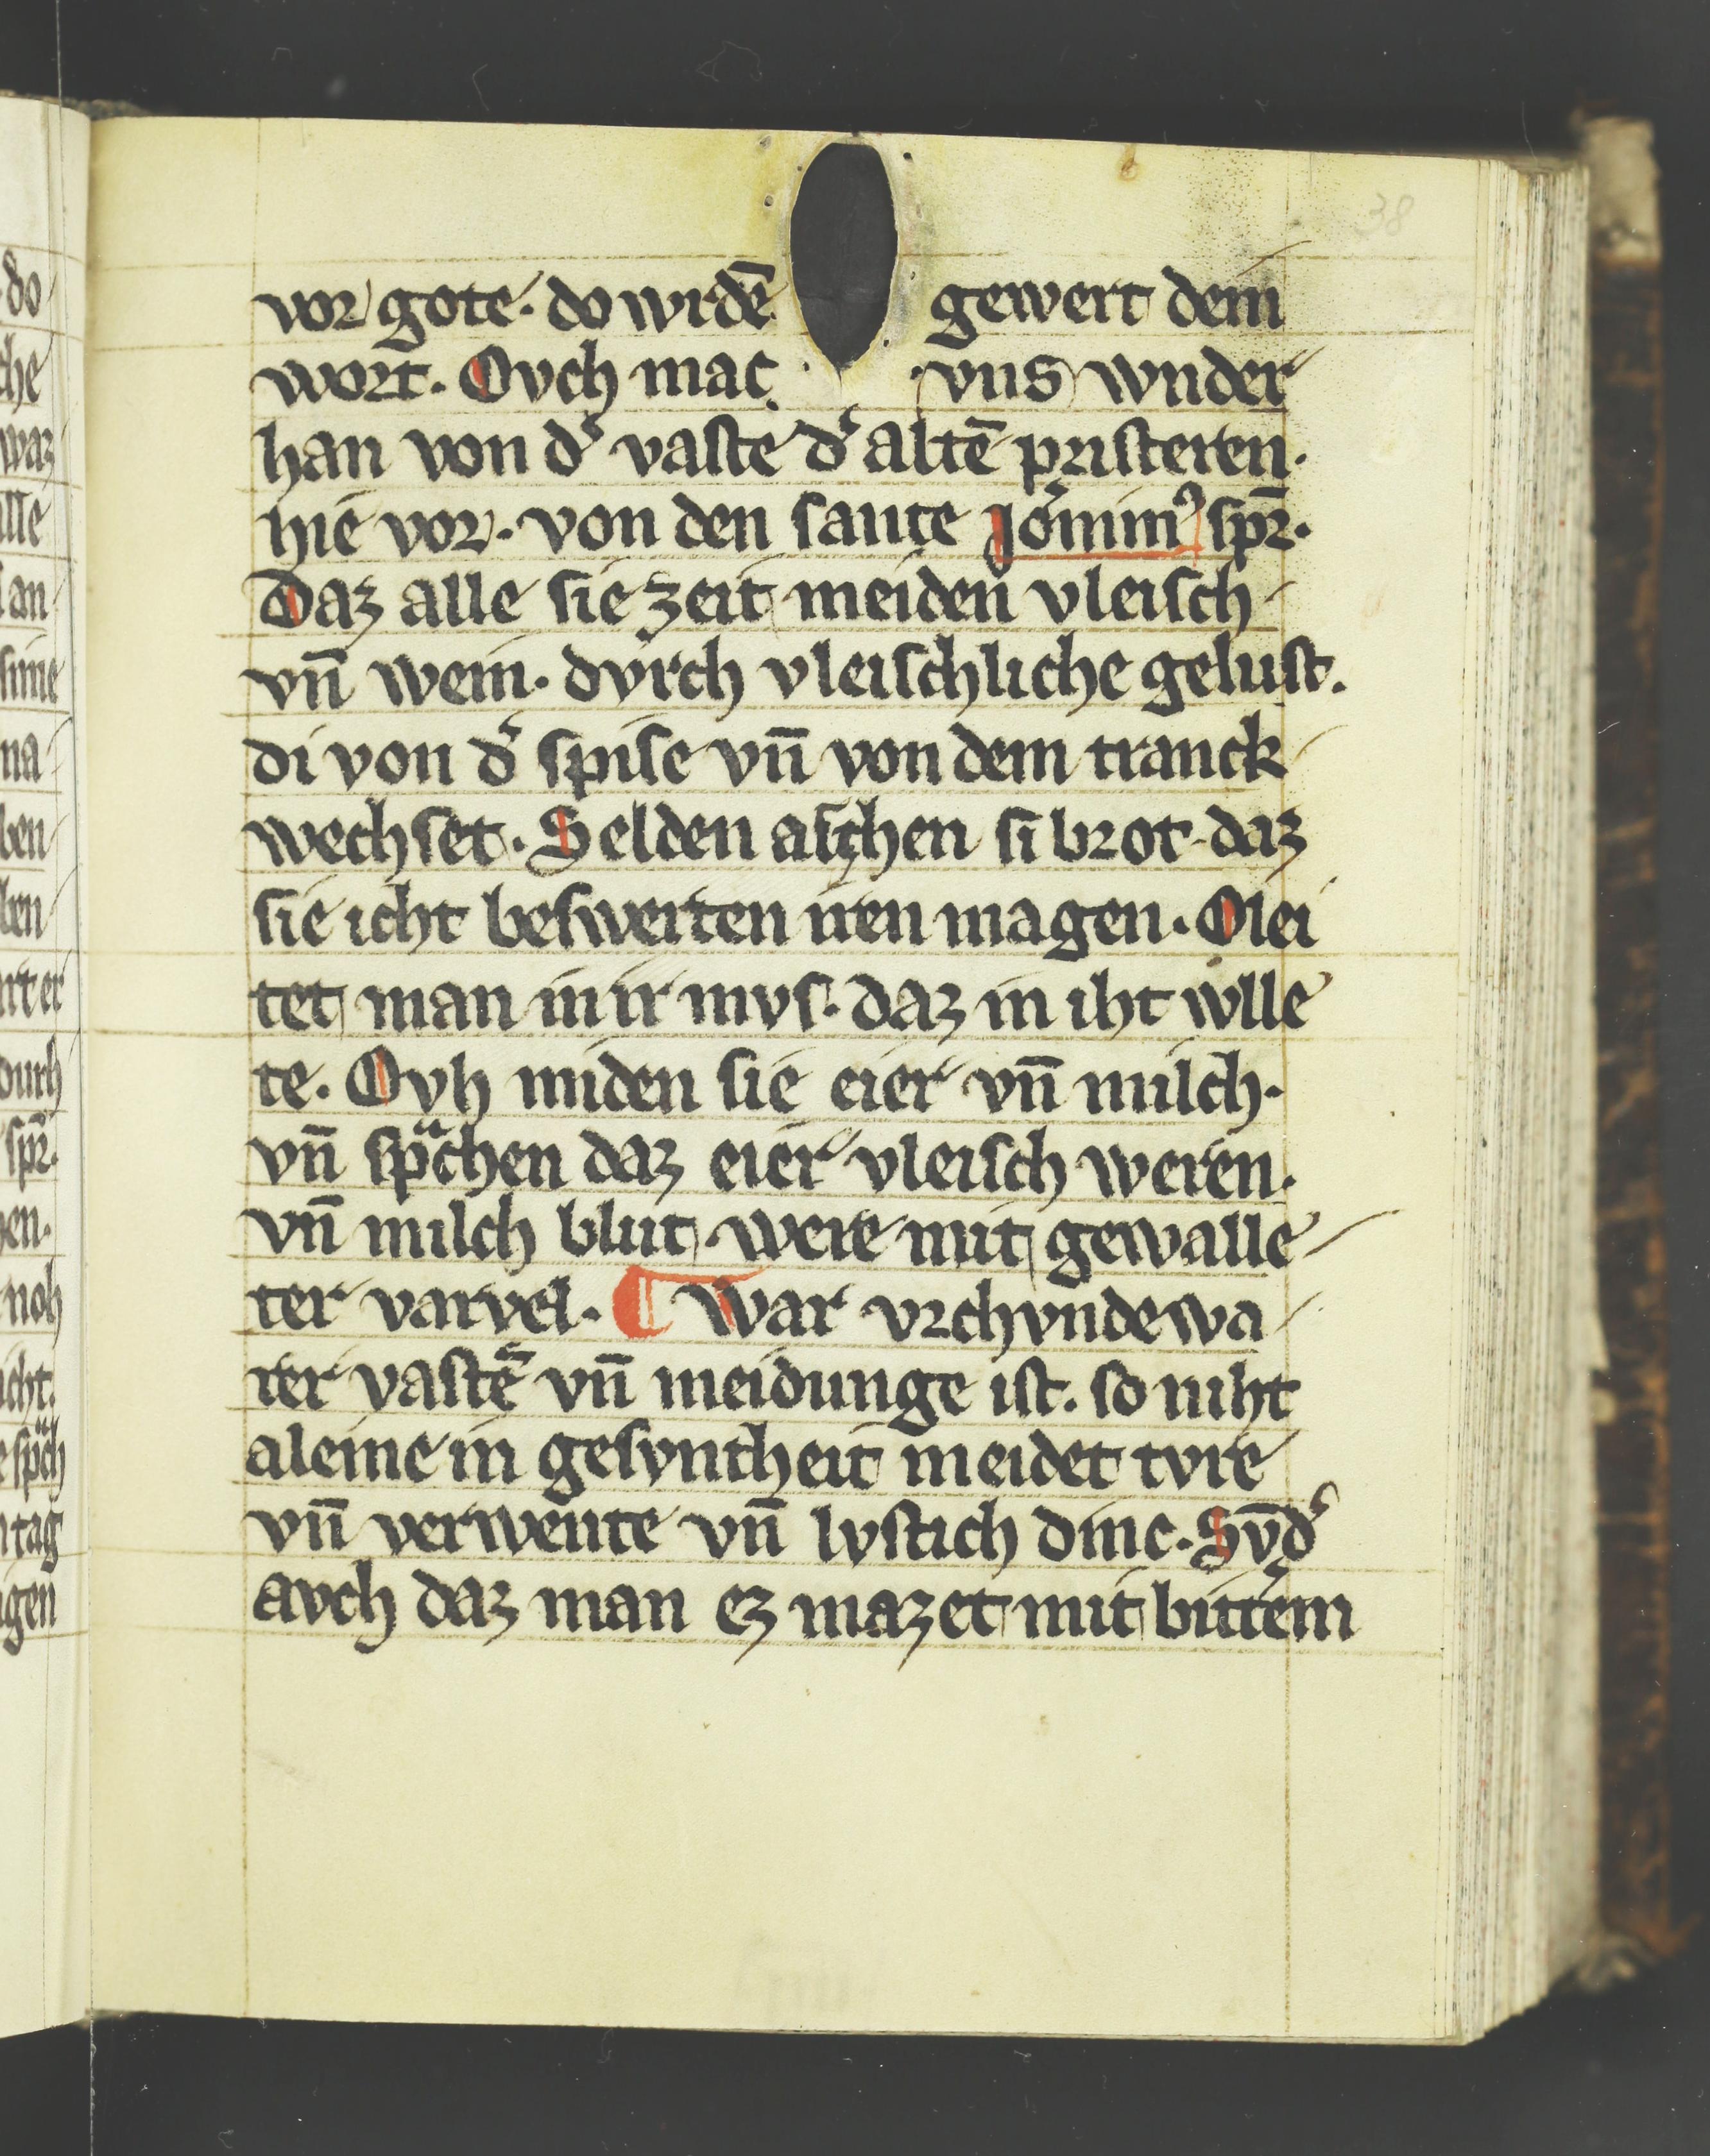 38
vor gote. do wrdē gewert dein
wort. Ovch mac vns wnder
han von dˀ vaste dˀ altē pristeren.
hie vor. von den sante Jōnimꝰ spr̄.
Daz alle sie zeit meiden vleisch
vn̄ wein. dvrch vleischliche gelust.
di von dˀ spise vn̄ von dem tranck
wechset. Selden aschen si brot. daz
sie icht beswerten iren magen. Olei
tet man in ir mvs. daz in iht wlle
te. Ovh miden sie eier vn̄ milch.
vn̄ spͣchen daz eier vleisch weren.
vn̄ milch blut. were mit gewalle
ter varvel. ¶ War vrchvnde wa
rer vastē vn̄ meidunge ist. so niht
aleine in gesvntheit meidet tvre
vn̄ verwente vn̄ lvstich dinc. Sv̄dˀ
avch daz man ez mazet mit bitterm